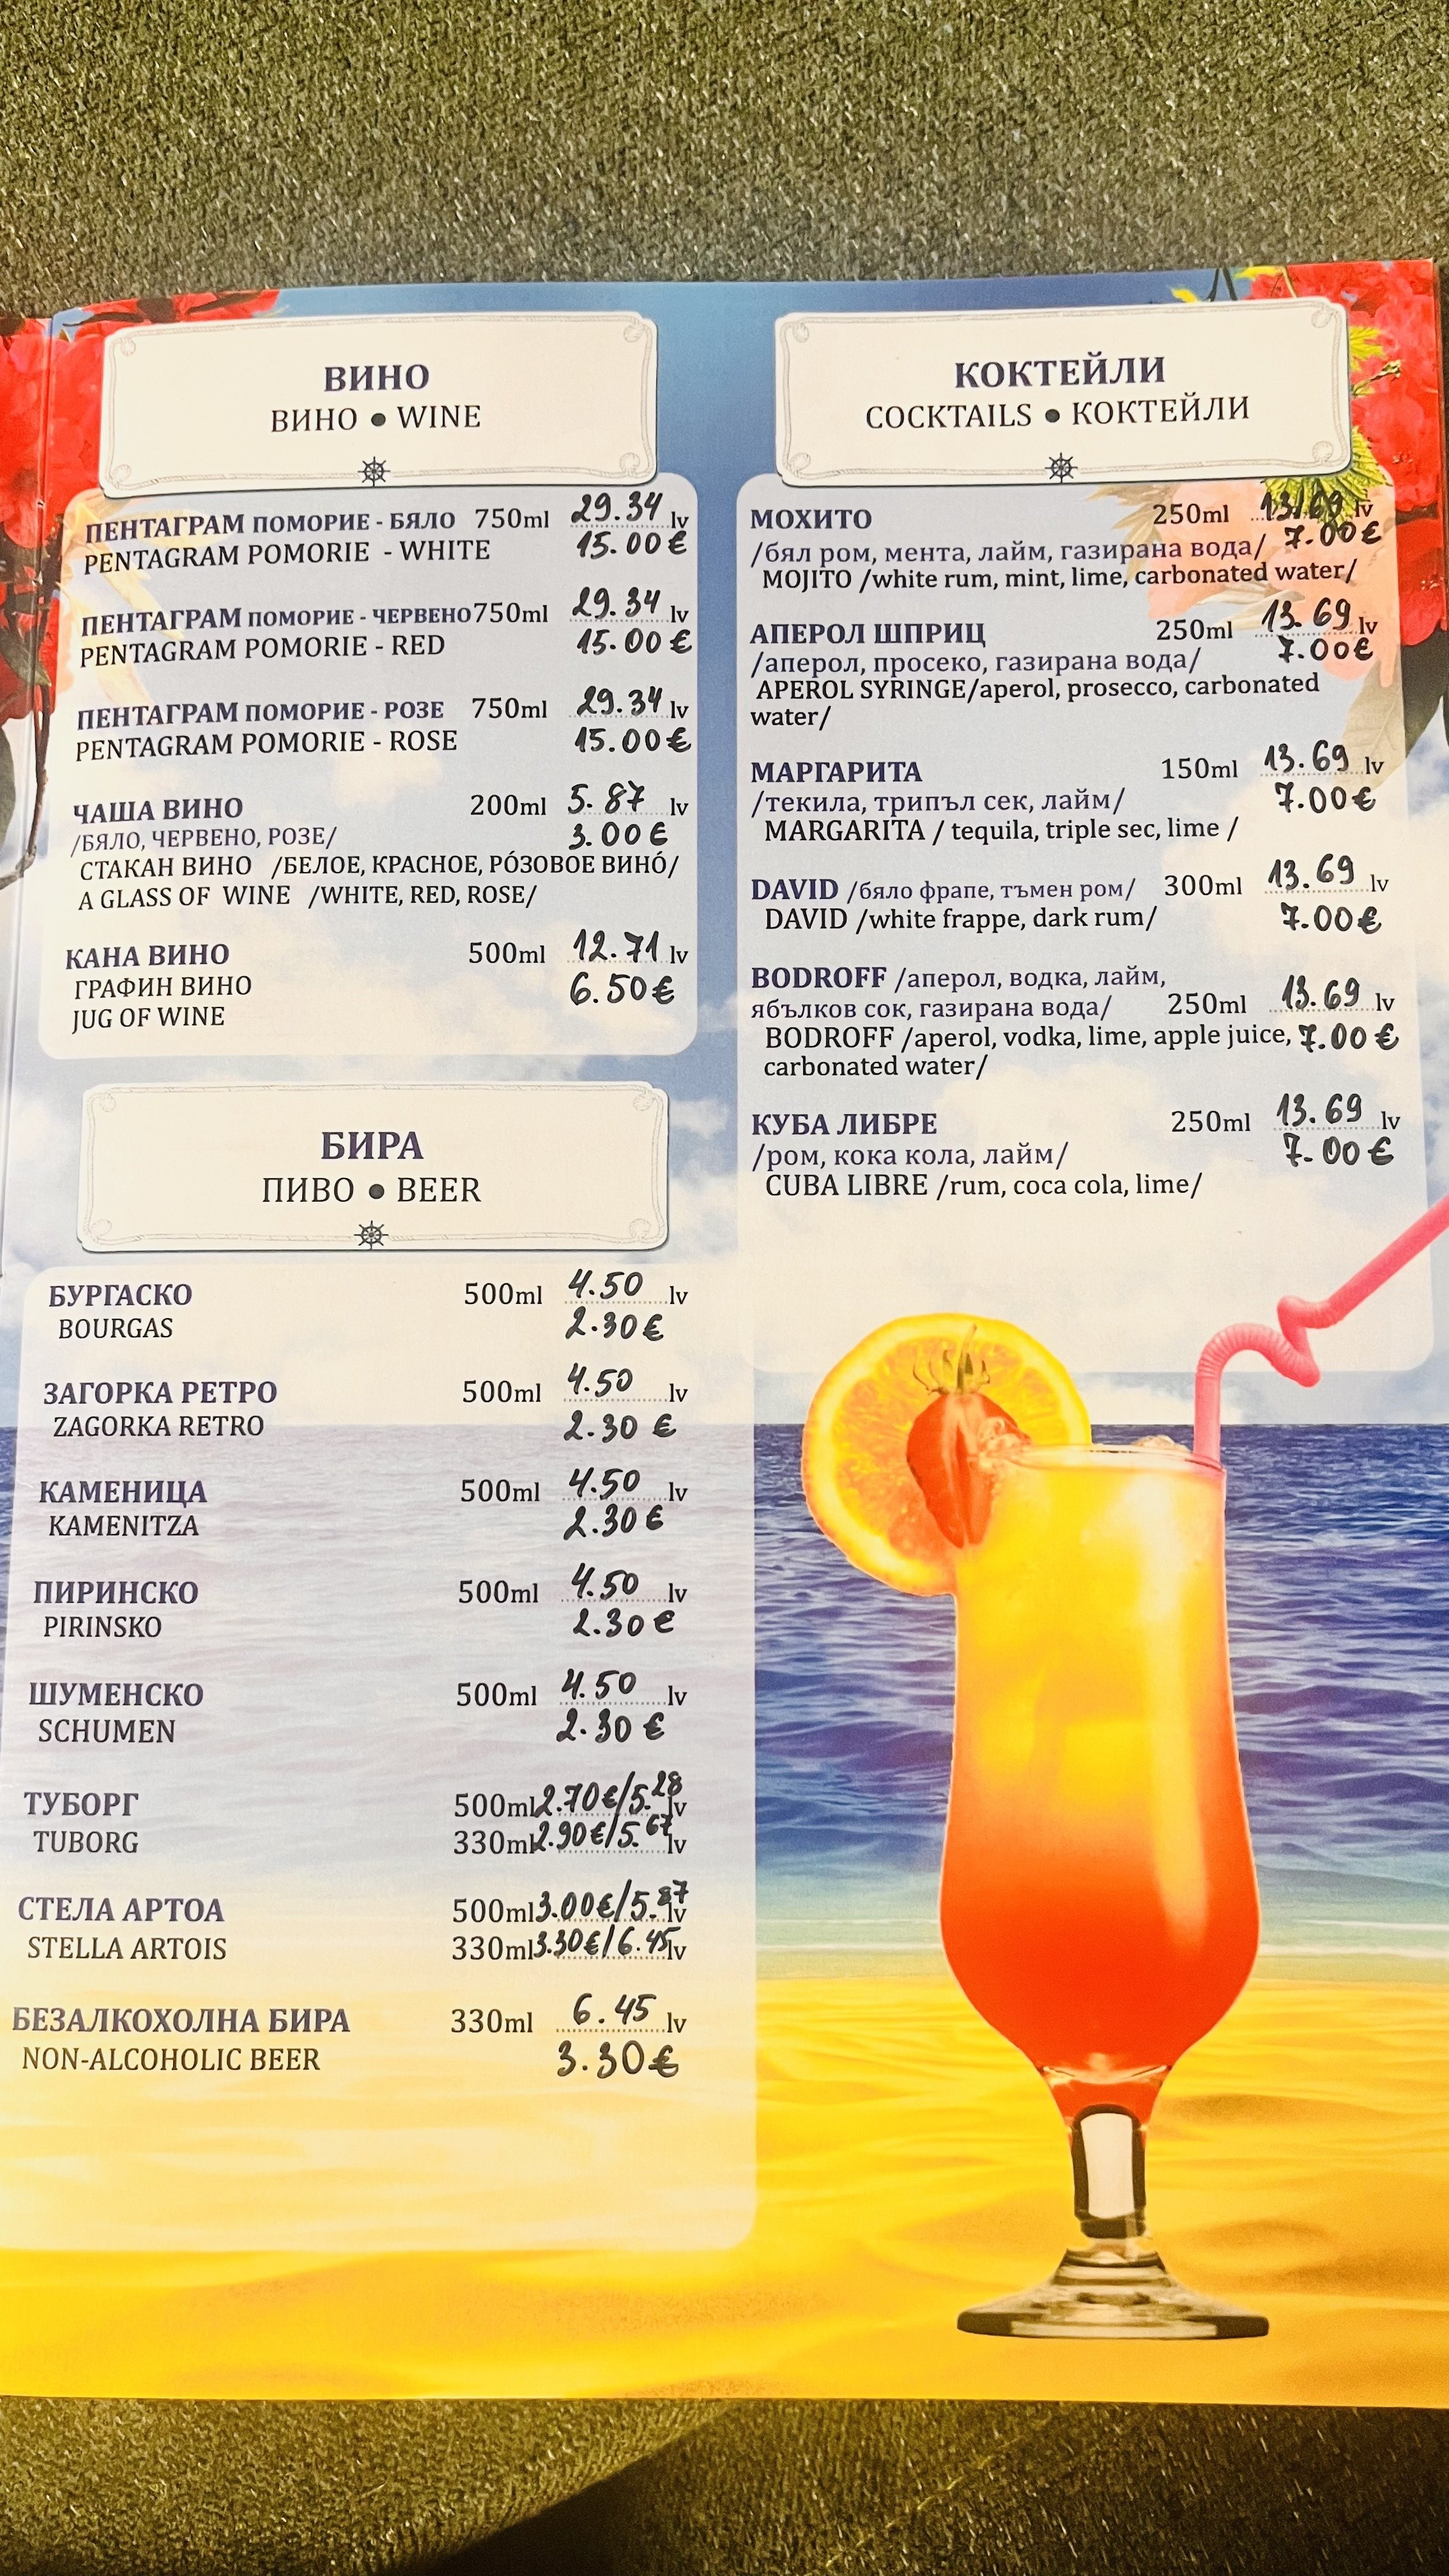 ВИНО
ВИНО ● WINE
ПЕНТАГРАМ ПОМОРИЕ - БЯЛО 750ml 29.34 lv
PENTAGRAM POMORIE - WHITE 15.00 €
ПЕНТАГРАМ ПОМОРИЕ - ЧЕРВЕНО 750ml 29.34 lv
PENTAGRAM POMORIE - RED 15.00 €
ПЕНТАГРАМ ПОМОРИЕ - РОЗЕ 750ml 29.34 lv
PENTAGRAM POMORIE - ROSE 15.00 €
ЧАША ВИНО 200ml 5.87 lv
/БЯЛО, ЧЕРВЕНО, РОЗЕ/ 3.00 €
СТАКАН ВИНО /БЕЛОЕ, КРАСНОЕ, РÓЗОВОЕ ВИНÓ/
A GLASS OF WINE /WHITE, RED, ROSE/
КАНА ВИНО 500ml 12.71 lv
ГРАФИН ВИНО 6.50 €
JUG OF WINE
БИРА
ПИВО ● BEER
БУРГАСКО 500ml 4.50 lv
BOURGAS 2.30 €
ЗАГОРКА РЕТРО 500ml 4.50 lv
ZAGORKA RETRO 2.30 €
КАМЕНИЦА 500ml 4.50 lv
KAMENITZA 2.30 €
ПИРИНСКО 500ml 4.50 lv
PIRINSKO 2.30 €
ШУМЕНСКО 500ml 4.50 lv
SCHUMEN 2.30 €
ТУБОРГ 500ml 2.70 €/5.28 lv
TUBORG 330ml 2.90 €/5.67 lv
СТЕЛА АРТОА 500ml 3.00 €/5.87 lv
STELLA ARTOIS 330ml 3.30 €/6.45 lv
БЕЗАЛКОХОЛНА БИРА 330ml 6.45 lv
NON-ALCOHOLIC BEER 3.30 €
КОКТЕЙЛИ
COCKTAILS ● КОКТЕЙЛИ
МОХИТО 250ml 13.69 lv
/бял ром, мента, лайм, газирана вода/ 7.00 €
MOJITO /white rum, mint, lime, carbonated water/
АПЕРОЛ ШПРИЦ 250ml 13.69 lv
/аперол, просеко, газирана вода/ 7.00 €
APEROL SYRINGE/aperol, prosecco, carbonated
water/
МАРГАРИТА 150ml 13.69 lv
/текила, трипъл сек, лайм/ 7.00 €
MARGARITA / tequila, triple sec, lime /
DAVID /бяло фрапе, тъмен ром/ 300ml 13.69 lv
DAVID /white frappe, dark rum/ 7.00 €
BODROFF /аперол, водка, лайм,
ябълков сок, газирана вода/ 250ml 13.69 lv
BODROFF /aperol, vodka, lime, apple juice, 7.00 €
carbonated water/
КУБА ЛИБРЕ 250ml 13.69 lv
/ром, кока кола, лайм/ 7.00 €
CUBA LIBRE /rum, coca cola, lime/